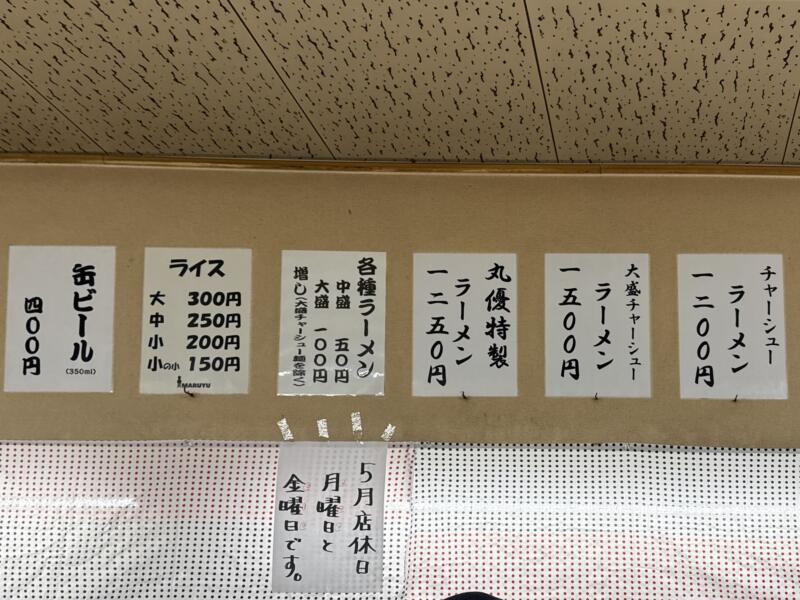 チャーシュー
ラーメン
一二〇〇円
大盛チャーシュー
ラーメン
一五〇〇円
丸優特製
ラーメン
一二五〇円
各種ラーメン
中盛 五〇円
大盛 一〇〇円
増し(大盛チャーシュー麺を除く)
ライス
大 300円
中 250円
小 200円
小の小 150円
MARUYU
缶ビール
(350ml)
四〇〇円
5月店休日
月曜日と
金曜日です。